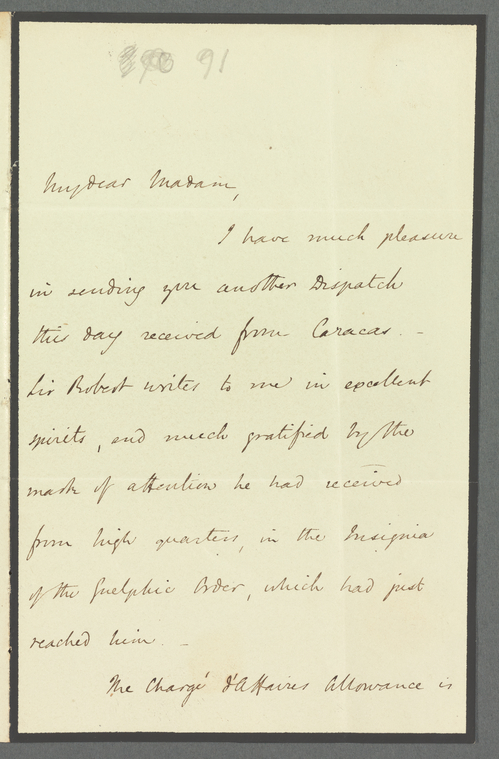 91
My dear Madam,
I have much pleasure
in sending you another Dispatch
this day received from Caracas. –
Sir Robert writes to me in excellent
spirits, and much gratified by the
mark of attention he had received
from high quarters, in the Insignia
of the Guelphic Order, which had just
reached him. –
The Chargé d'Affaires Allowance is